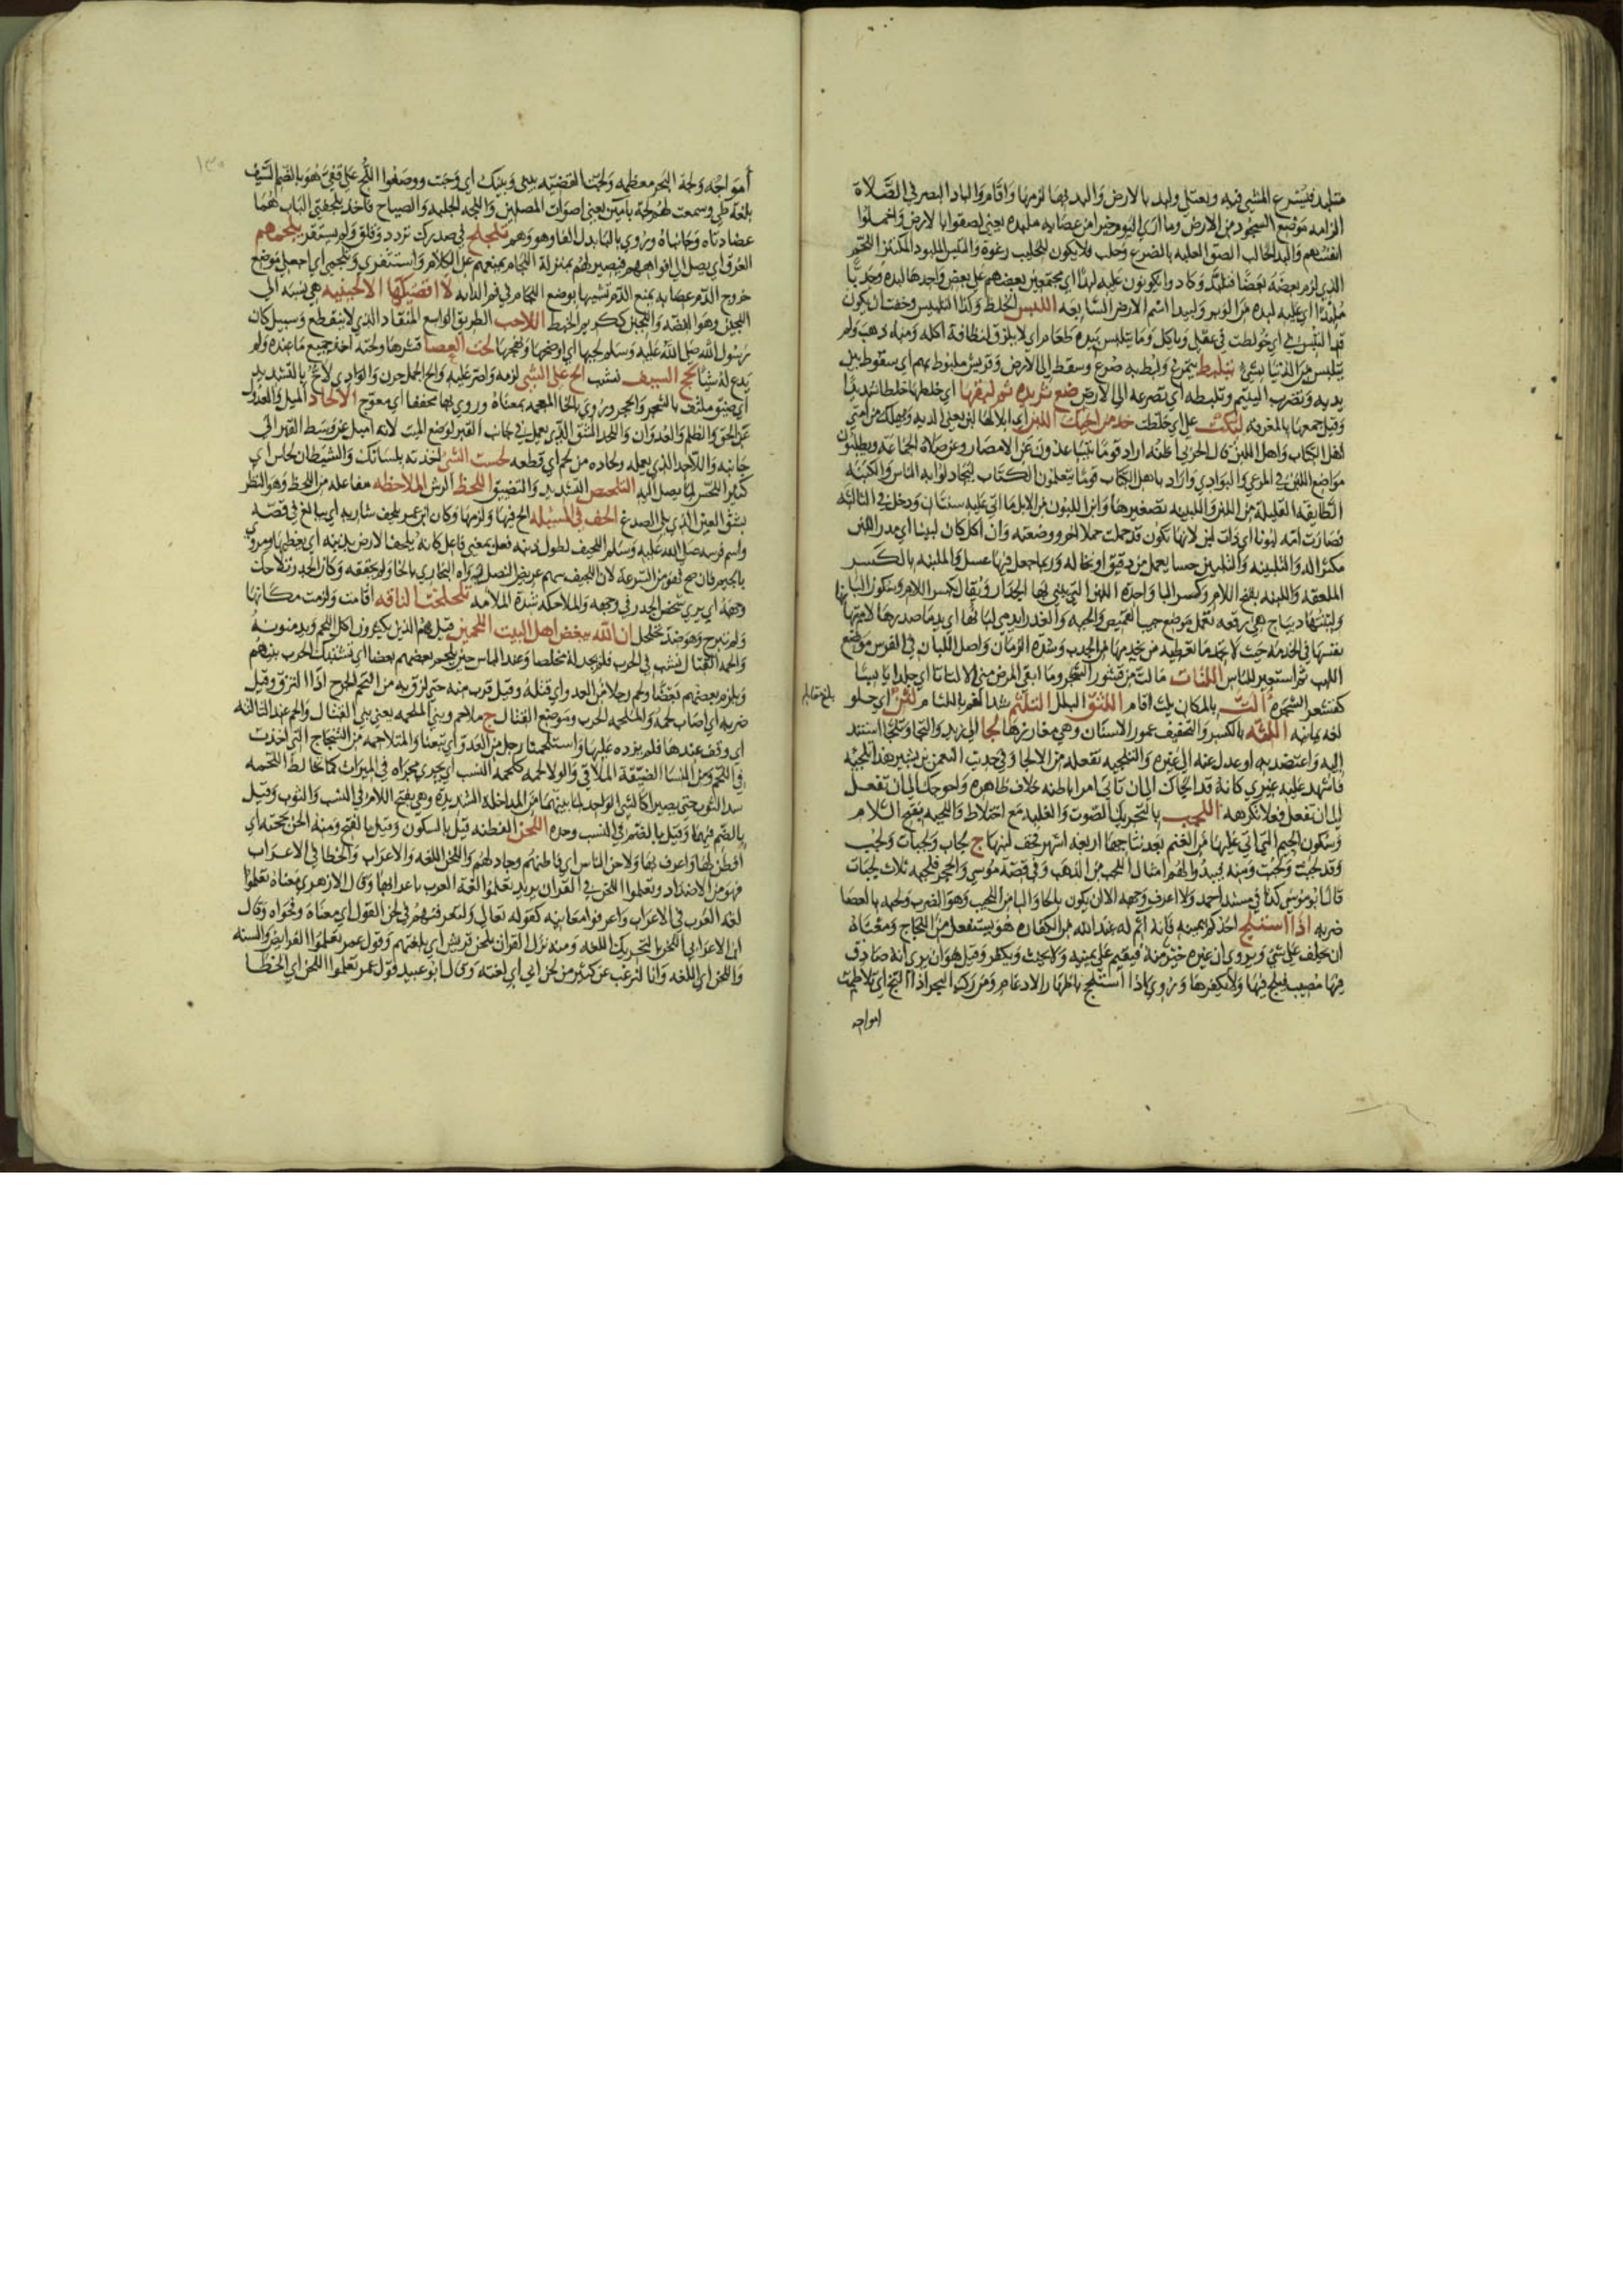 متلبد فيسرع المشي فيه ويعتلي ولبد بالارض والبد بها لزمها واقام والباد البصر في الصلاة
الزامه موضع السجود من الارض وما اري اليوم خيرا من عصابه ملبده يعني لصقوا بالارض واخملوا
انفسهم والبد الحالب الصق العلبه بالضرع وحلب فلا يكون للحليب رغوة والملبود المكتنز اللحم
الذي لزم بعضه بعضا فتلبد وكادوا يكونون عليه لبدا اي مجتمعين بعضهم على بعض واحدها لبده
ملبدا اي عليه لبده من الوبر ولبيدا اسم الارض السابعه اللبس الخلط وكذا التلبيس وخفت ان يكون
قد التبس بي اي خولطت في عقلي وياكل وما يتلبس بيده طعام اي لا يلزق لنظافة اكله ومنه ذهب ولم
يتلبس من الدنيا بشي يتلبط يتمرغ ولبط به صرع وسقط الى الارض وقريش ملبوط بهم اي سقوط بين
يديه وتضرب اليتيم وتلبطه اي تصرعه الى الارض صنع ثريده ثم لبقها اي خلطها خلطا شديدا
وقيل جمعها بالمغرفه لبكت علي اي خلطت خذ من اخيك اللبن اي ابلا لها لبن يعني الديه وسيهلك من امتي
اهل الكتاب واهل اللبن قال الحربي اظنه اراد قوما يتباعدون عن الامصار وعن صلاة الجماعه ويطلبون
مواضع اللبن في المرعي والبوادي واراد باهل الكتاب قوما يتعلمون الكتاب ليجادلوا به الناس واللبينه
الطايفه القليله من اللبن واللبينه تصغيرها وابن اللبون من الابل ما اتى عليه سنتان ودخل في الثالثه
فصارت امه لبونا اي ذات لبن لانها تكون قد حملت حملا اخر ووضعته وان اكل كان لبينا اي مدر اللبن
مكثرا له والتلبينه والتلبين حسا يعمل من دقيق او نخاله وربما جعل فيها عسل والملبنه بالكسر
الملعقه واللبنه بفتح اللام وكسر البا واحدة اللبن التي يبني بها الجدار ويقال بكسر اللام وسكون البا
ولبنتها ديباج هي رقعه تعمل موضع جيب القميص والجبه
بنفسها في الخدمه حيث لا تجد ما تعطيه من يخدمها من الجدب وشدة الزمان واصل اللبان في الفرس موضع
اللبب ثم استعير للناس اللتات ما لت من قشور الشجر وما ابقى المرض مني الا لتاتا اي جلدا يابسا
كقشر الشجره الث بالمكان يلث اقام اللثق البلل التلثم شد الفم باللثام لثن اي حلو
لغه يمانيه اللثه بالكسر والتخفيف عمور الاسنان وهي مغارزها لجا الى زيد والتجا وتلجا استند
اليه واعتضد به او عدل عنه الى غيره والتلجيه تفعله من الالجا وفي حديث النعمن بن بشير هذا تلجيه
فاشهد عليه غيري كانه قد الجاك الى ان تاتي امرا باطنه خلاف ظاهره واحوجك الى ان تفعل
فعلا تكرهه اللجب بالتحريك الصوت والغلبه مع اختلاط واللجبه بفتح اللام
وسكون الجيم التي اتى عليها من الغنم بعد نتاجها اربعه اشهر فخف لبنها ج لجاب ولجبات ولجب
وفي قصة موسى والحجر فلجبه ثلاث لجبات
قال ابو موسى كذا في مسند احمد ولا اعرف وجهه الا ان يكون بالحا والبا من اللحب وهو الضرب ولحبه بالعصا
ضربه اذا استلج احدكم بيمينه فانه آثم له عند الله من الكفاره هو يستفعل من اللجاج ومعناه
ان يحلف على شي ويري ان غيره خير منه فيقيم على يمينه ولا يحنث ويكفر وقيل هو ان يري انه صادق
فيها مصيب فيلج فيها ولا يكفرها وروي اذا استلجج باظهار الادغام ومن ركب البحر اذا التج اي تلاطمت
امواجه
امواجه ولجة البحر معظمه ولجت القضيه بيني وبينك اي وجبت ووضعوا اللج على قفي هو بالضم السيف
بلغة طي وسمعت لهم لجة بامين يعني اصوات المصلين واللجه الجلبه والصياح فاخذ بلجفتي الباب هما
عضادتاه وجانباه وروي بالبا بدل الفا وهو وهم تلجلج في صدرك تردد وقلق ولم يستقر يلجمهم
العرق اي يصل الى افواههم فيصير لهم بمنزلة اللجام يمنعهم عن الكلام واستثفري وتلجمي اي اجعلي موضع
خروج الدم عصابه تمنع الدم تشبيها بوضع اللجام في فم الدابه لا اقضيكها الا لجينيه هي نسبه الى
اللجين وهو الفضه واللجين ككريم الخبط اللاحب الطريق الواسع المنقاد الذي لا ينقطع وسبيل كان
رسول الله صلى الله عليه وسلم لحبها اي اوضحها ونهجها لحت العصا قشرها ولحته اخذ جميع ما عنده ولم
يدع له شيا لحج السيف نشب الح على الشي لزمه واصر عليه والح الجمل حرن والوادي لاح بالتشديد
اي ضيق ملتف بالشجر والحجر وروي بالخا المعجمه بمعناه وروي بها مخففا اي معوج الالحاد الميل والعدول
عن الحق والظلم والعدوان واللحد الشق الذي يعمل في جانب القبر لوضع الميت لانه اميل عن وسط القبر الى
جانبه واللاحد الذي يعمله ولحاده من لحم اي قطعه لحست الشي اخذته بلسانك والشيطان لحاس اي
كثير اللحس لما يصل اليه التلحيص التشديد والتضييق اللحظ الرش الملاحظه مفاعله من اللحظ وهو النظر
بشق العين الذي يلي الصدغ الحف في المسيله الح فيها ولزمها وكان ابن عمر يلحف شاربه اي يبالغ في قصه
واسم فرسه صلى الله عليه وسلم اللحيف لطول ذنبه فعيل بمعنى فاعل كانه يلحف الارض بذنبه اي يغطيها وروي
بالجيم فان صح فهو من السرعة لان اللجيف سهم عريض النصل ورواه البخاري بالخا ولم يحققه
والملاحكه شدة الملامه تلحلحت الناقه اقامت ولزمت مكانها
ولم تبرح وهو ضد تحلحل ان الله يبغض اهل البيت اللحمين قيل هم الذين يكثرون اكل اللحم ويدمنونه
والحمه القتال نشب في الحرب فلم يجد له مخلصا
ويلزم بعضهم بعضا
ضربه اي اصاب لحمه والملحمه الحرب وموضع القتال ج ملاحم ونبي الملحمه يعني نبي القتال والحم عند الثالثه
اي وقف عندها فلم يزده عليها واستلحمنا رجل من العدو اي تبعنا والمتلاحمه من الشجاج التي اخذت
في اللحم ومن النسا الضيقة الملاقي والولا لحمه كلحمه النسب اي يجري مجراه في الميراث كما تخالط اللحمه
سدا الثوب حتى يصيرا كالشي الواحد لما بينهما من المداخله الشديده وهي بفتح اللام في النسب والثوب وقيل
بالضم فيهما وقيل بالضم في النسب وحده اللحن الفطنه قيل بالسكون وقيل بالفتح ومنه الحن بحجته اي
افطن لها واعرف بها ولاحن الناس اي فاطنهم وجادلهم واللحن اللغه والاعراب والخطا في الاعراب
فهو من الاضداد وتعلموا اللحن في القران يريد تعلموا لغة العرب باعرابها وقال الازهري معناه تعلموا
لغه العرب في الاعراب واعرفوا معانيه كقوله تعالى ولتعرفنهم في لحن القول اي معناه وفحواه وقال
ابن الاعرابي اللحن بالتحريك اللغه ومنه نزل القران بلحن قريش اي بلغتهم وقول عمر تعلموا الفرايض والسنه
واللحن اي اللغه وانا لنرغب عن كثير من لحن ابي اي لغته وقال ابو عبيد قول عمر تعلموا اللحن اي الخطا